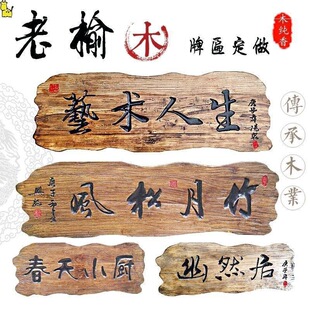 老榆木 牌匾定做
木纯香
藝术人生
傳承木業
風松月竹
春天小厨
幽然居